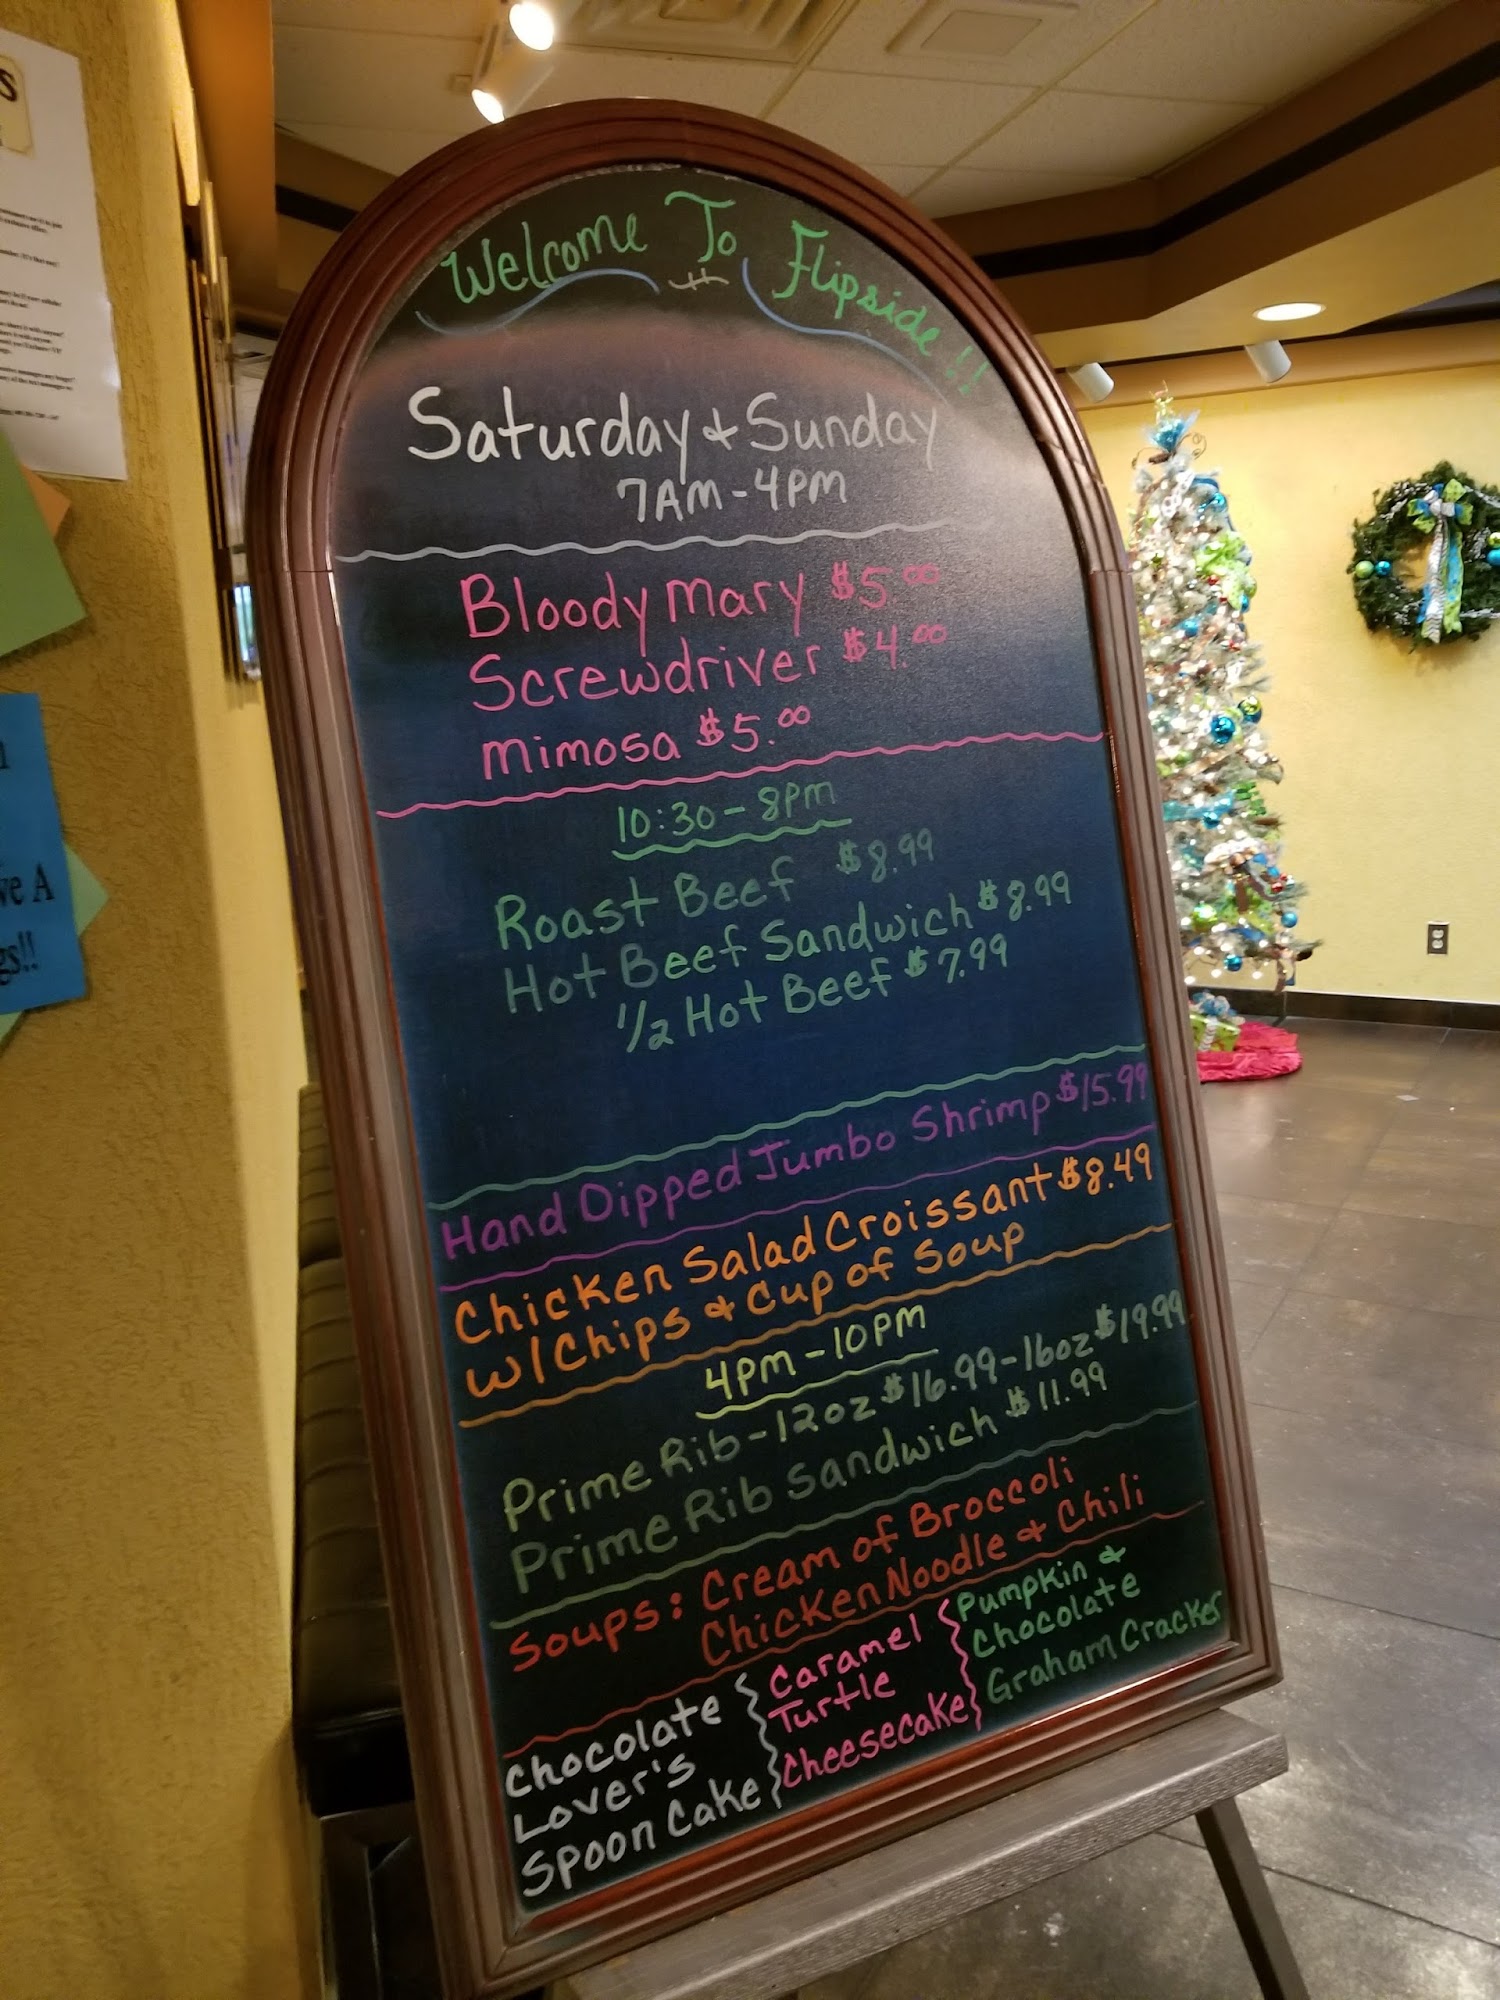 Welcome To Flipside!!
Saturday + Sunday
7AM-4PM
Bloody Mary $5.00
Screwdriver $4.00
Mimosa $5.00
10:30-8pm
Roast Beef $8.99
Hot Beef Sandwich $8.99
1/2 Hot Beef $7.99
Hand Dipped Jumbo Shrimp $15.99
Chicken Salad Croissant $8.49
w/Chips & Cup of Soup
4pm-10pm
Prime Rib-12oz $16.99-16oz $19.99
Prime Rib Sandwich $11.99
Soups: Cream of Broccoli
Chicken Noodle & Chili
Chocolate
Lover's
Spoon Cake
Caramel
Turtle
Cheesecake
Pumpkin &
Chocolate
Graham Cracker
ve A
gs!!